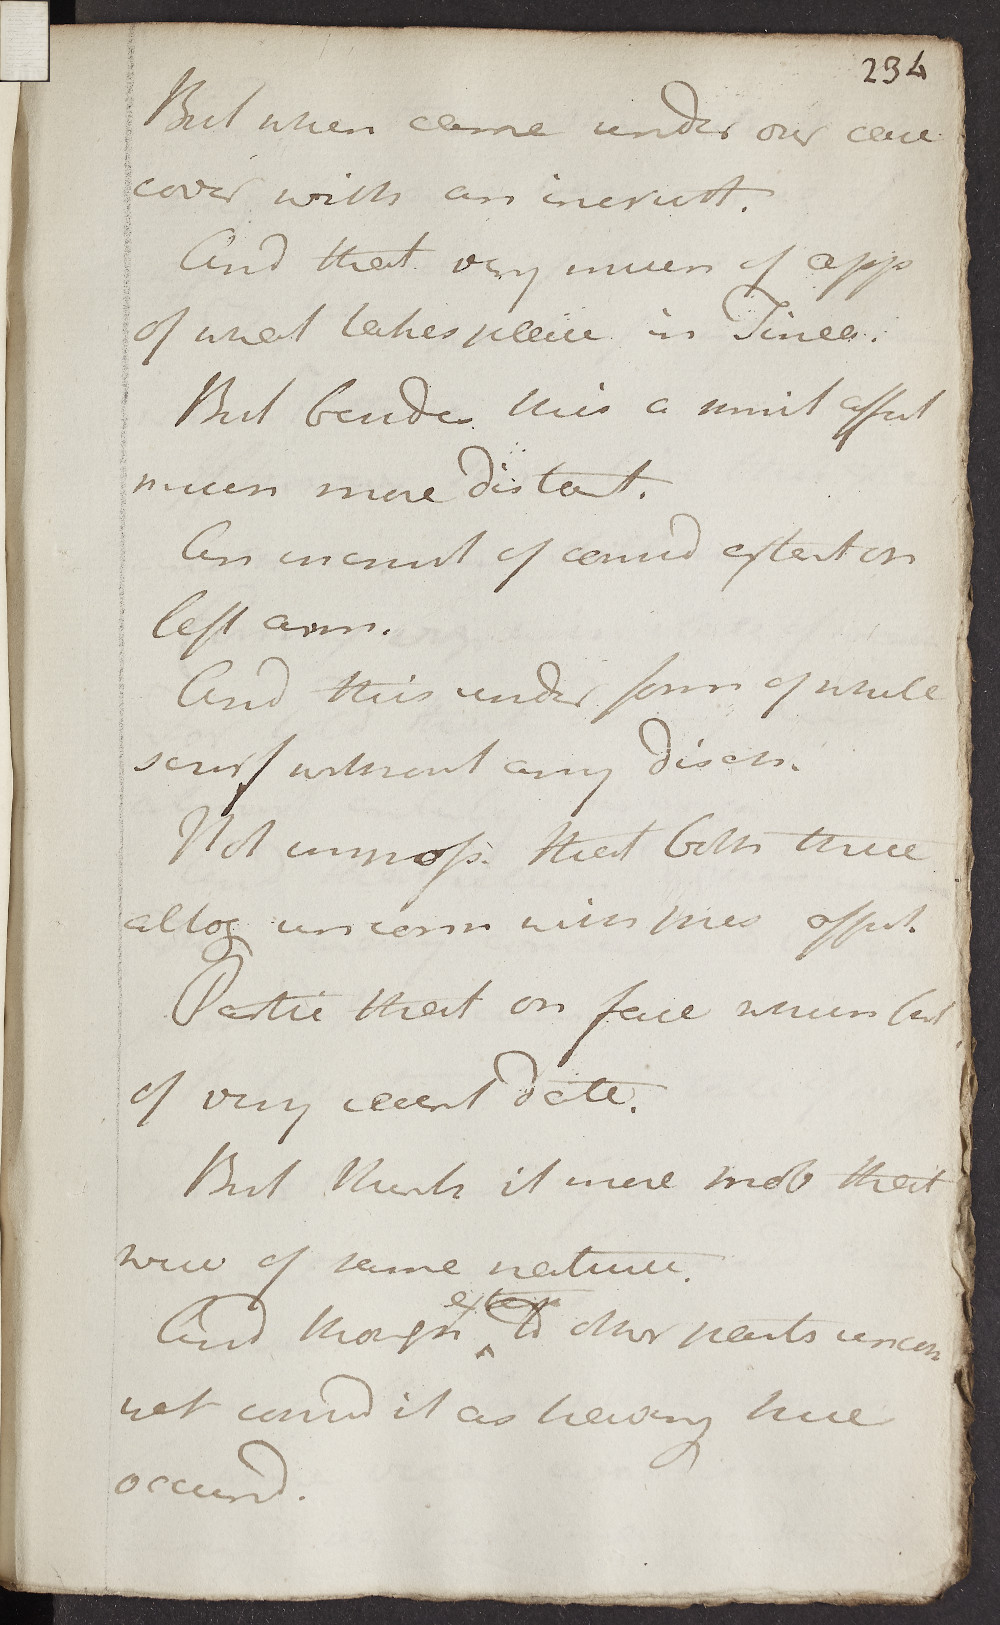 234
But when came under our care
cover with an incrust.
And that very much of app
of what takes place in Tinea.
But besides this a simil affect
much more distant.
An incrust of consid extent on
left arm.
And this under form of white
scurf without any disch.
Not imposs. that both these
altog unconn with prec affect.
Partic that on face which last
of very recent date.
But think it more prob that
were of same nature.
And though exten to other parts uncom
yet consid it as having here
occurrd.